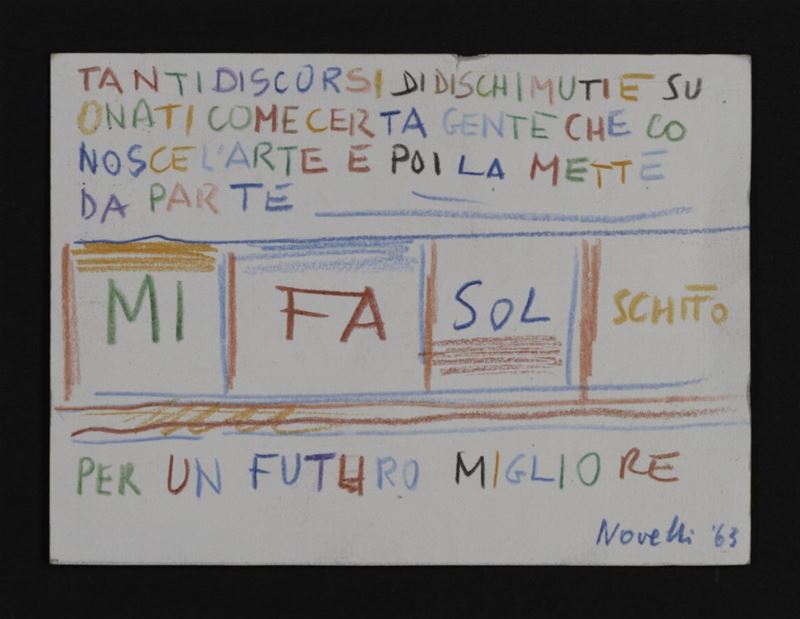 TANTI DISCORSI DI DISCHI MUTI E SU
ONATI COME CERTA GENTE CHE CO
NOSCE L'ARTE E POI LA METTE
DA PARTE
MI FA SOL SCHITTO
PER UN FUTURO MIGLIORE
Novelli '63